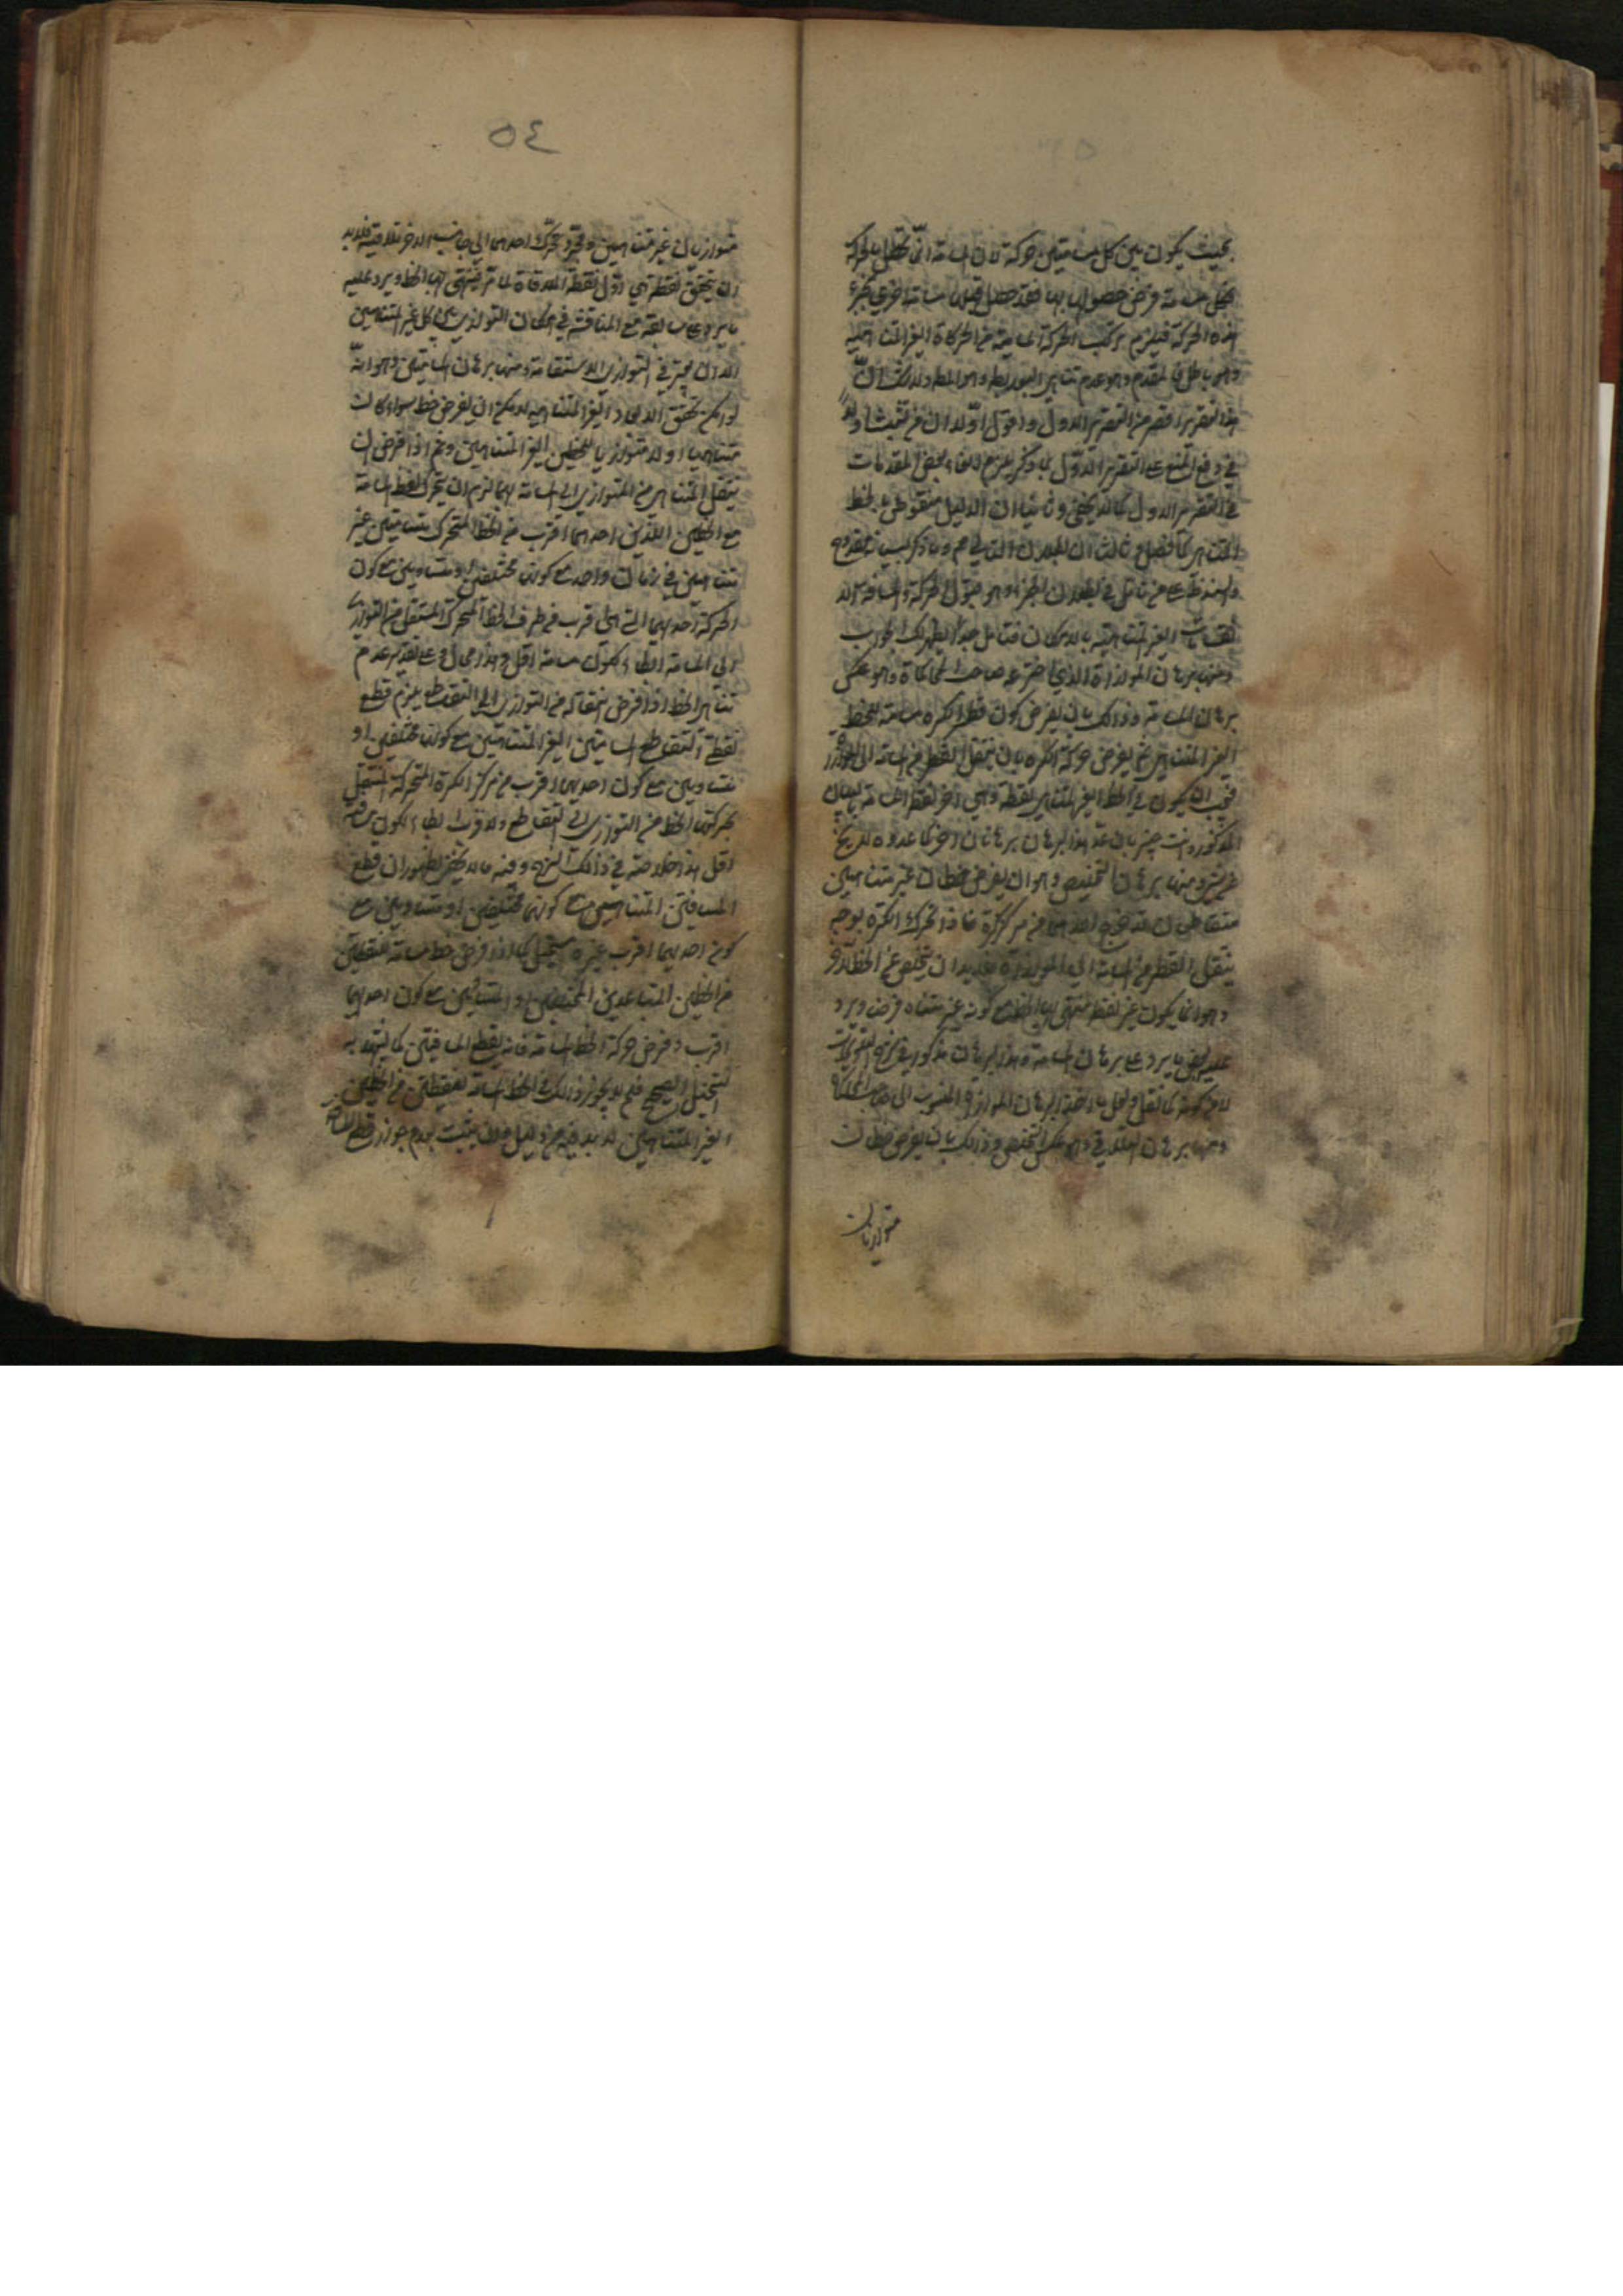 بحيث يكون بين كل مسامتين حركة لان المسامتة انما تحصل بالحركة
فكل مسامتة فرض حصولها بها فقد حصل قبلها مسامتة اخرى بجزء
هذه الحركة فيلزم تركب الحركة المتناهية من الحركات الغير المتناهية
وهو باطل فالمقدم وهو عدم تناهي البعد باطل وهو المط ولا شك ان
هذا التقرير اقصر من التقرير الاول واقول اولا ان من تشبث
في دفع المنع على التقرير الاول بما ذكر يلزم الغاء بعض المقدمات
في التقرير الاول كما لا يخفى وثانيا ان الدليل منقوض بالخط
المتناهي كما فصل وثالثا ان بطلان التالي مم وما ذكر لبيانه مقدوح
من تأمل في بطلان الجزء وهو قبول الحركة والمسافة الا
نقسامات الغير المتناهية بالامكان فتأمل جدا ليظهر لك الجواب
ومنها برهان الموازاة الذي اخترعه صاحب المحاكمات وهو عكس
برهان المسامتة وذلك بان يفرض كون قطر الكرة مسامتة للخط
الغير المتناهي ثم يفرض حركة الكرة بان ينتقل القطر من المسامتة الى الموازاة
فيجب ان يكون في الخط الغير المتناهي نقطة وهي آخر نقطة المسامتة بالبيان
المذكور وانت خبير بان عد هذا البرهان برهانا آخر كما عدوه لا يخ
عن شيء ومنها برهان التخليص وهو ان يفرض خطان غير متناهيين
متقاطعان قد خرج احدهما من مركز كرة فاذا تحرك الكرة بوجه
ينتقل القطر من المسامتة الى الموازاة فلا بد ان يتخلص عن الخط الآخر
وهو انما يكون عن نقطة ينتهي بها الخط مع كونه غير متناه فرض ويرد
عليه ايضا ما يرد على برهان المسامتة وهذا البرهان مذكور في شرح التلويحات
لابن كمونة كما نقل ولعل مأخذه البرهان الموازاة المنسوب الى صاحب المحاكمات
ومنها برهان التلاقي وهو عكس التخليص وذلك بان يفرض خطان
متوازيان
٥٤
متوازيان غير متناهيين وتحرك احدهما الى جانب الآخر لملاقيته فلا بد
ان يتحقق نقطة هي اول نقطة الملاقاة فينتهي بها الخط ويرد عليه
ما يرد على سابقه مع المناقشة في امكان التوازي بين كل غير المتناهيين
الا ان يعتبر في التوازي الاستقامة ومنها برهان المسامتتين وهو انه
لو امكن تحقق الابعاد الغير المتناهية لامكن ان يفرض خط سواء كان
متناهيا او لا متوازيا للخطين الغير المتناهيين وح اذا فرض ان
ينتقل المتناهي من التوازي الى المسامتة لهما لزم ان يتحرك لنقط المسامتة
مع الخطين اللذين احدهما اقرب من الخط المتحرك بمسامتتين غير
متناهيين في زمان واحد مع كونهما مختلفين او متساويين مع كون
الحركة احدهما التي هي اقرب من طرف الخط المتحرك المنتقل من التوازي
الى المسامتة ابطاء لكون مسافته اقل وهذا محال وعلى تقدير عدم
تناهي الخط اذا فرض انتقاله من التوازي الى التقاطع يلزم قطع
نقطة التقاطع المسافتين الغير المتناهيتين مع كونهما مختلفين او
متساويين مع كون احدهما اقرب من مركز الكرة المتحركة المنتقل
بحركتها الخط من التوازي الى التقاطع والاقرب ابطاء لكون مسافته
اقل هذا خلاصة في ذلك النهج وفيه ما لا يخفى لظهور ان قطع
المسافتين المتناهيين مع كونهما مختلفين او متساويين مع
كون احدهما اقرب غير مستحيل كما اذا فرض خط مسامتة لنقطتين
من الخطين المتباعدين المختلفين او المتساويين مع كون احدهما
اقرب وفرض حركة الخط المسامتة فانه يقطع المسافتين كما يشهد به
التخيل الصحيح فلم لا يجوز ذلك في الخط المسامتة لنقطتين من الخطين
الغير المتناهيين لا بد فيه من دليل يثبت عدم جواز قطع